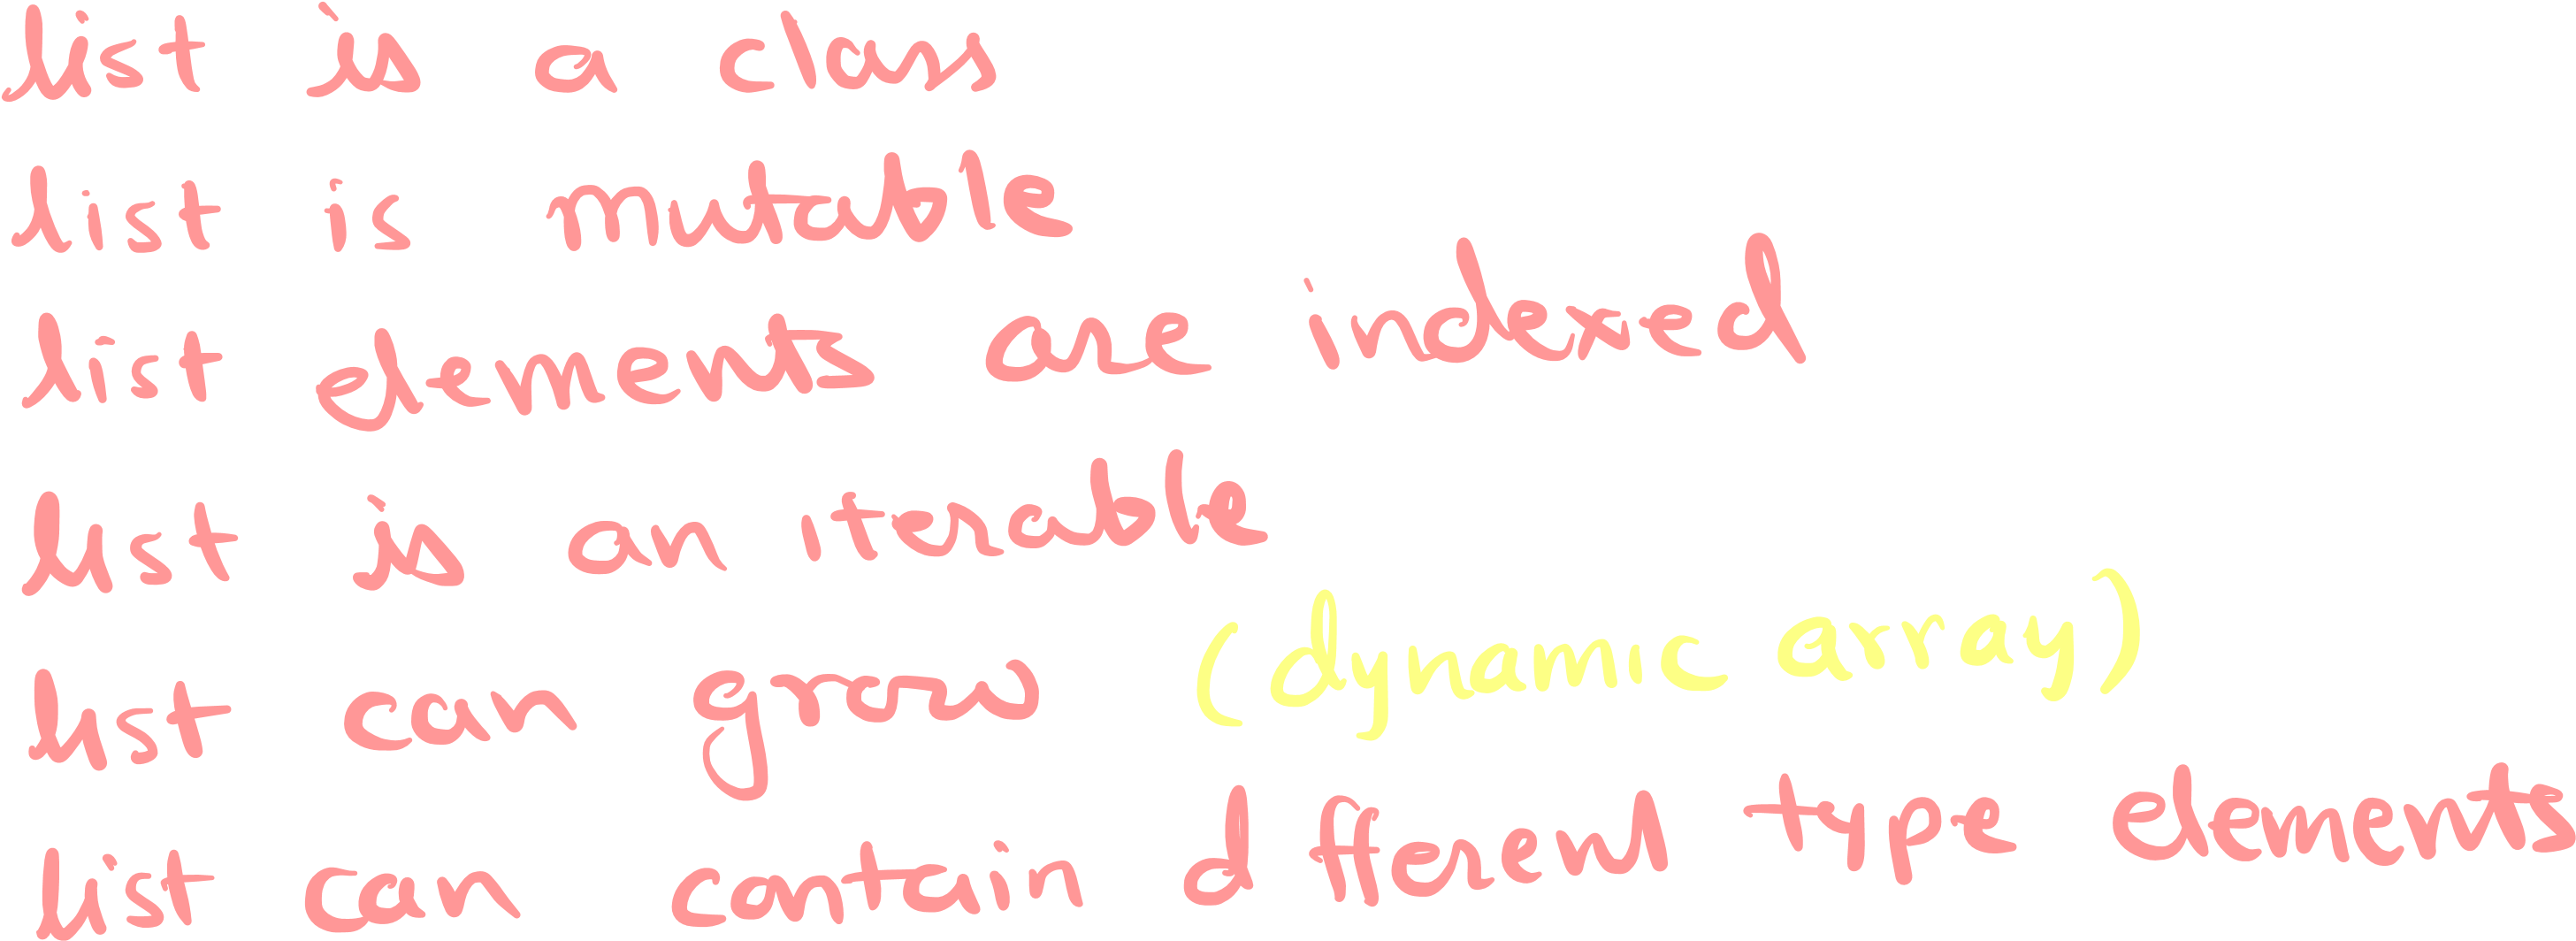 list is a class
list is mutable
list elements are indexed
list is an iterable
list can grow (dynamic array)
list can contain different type elements